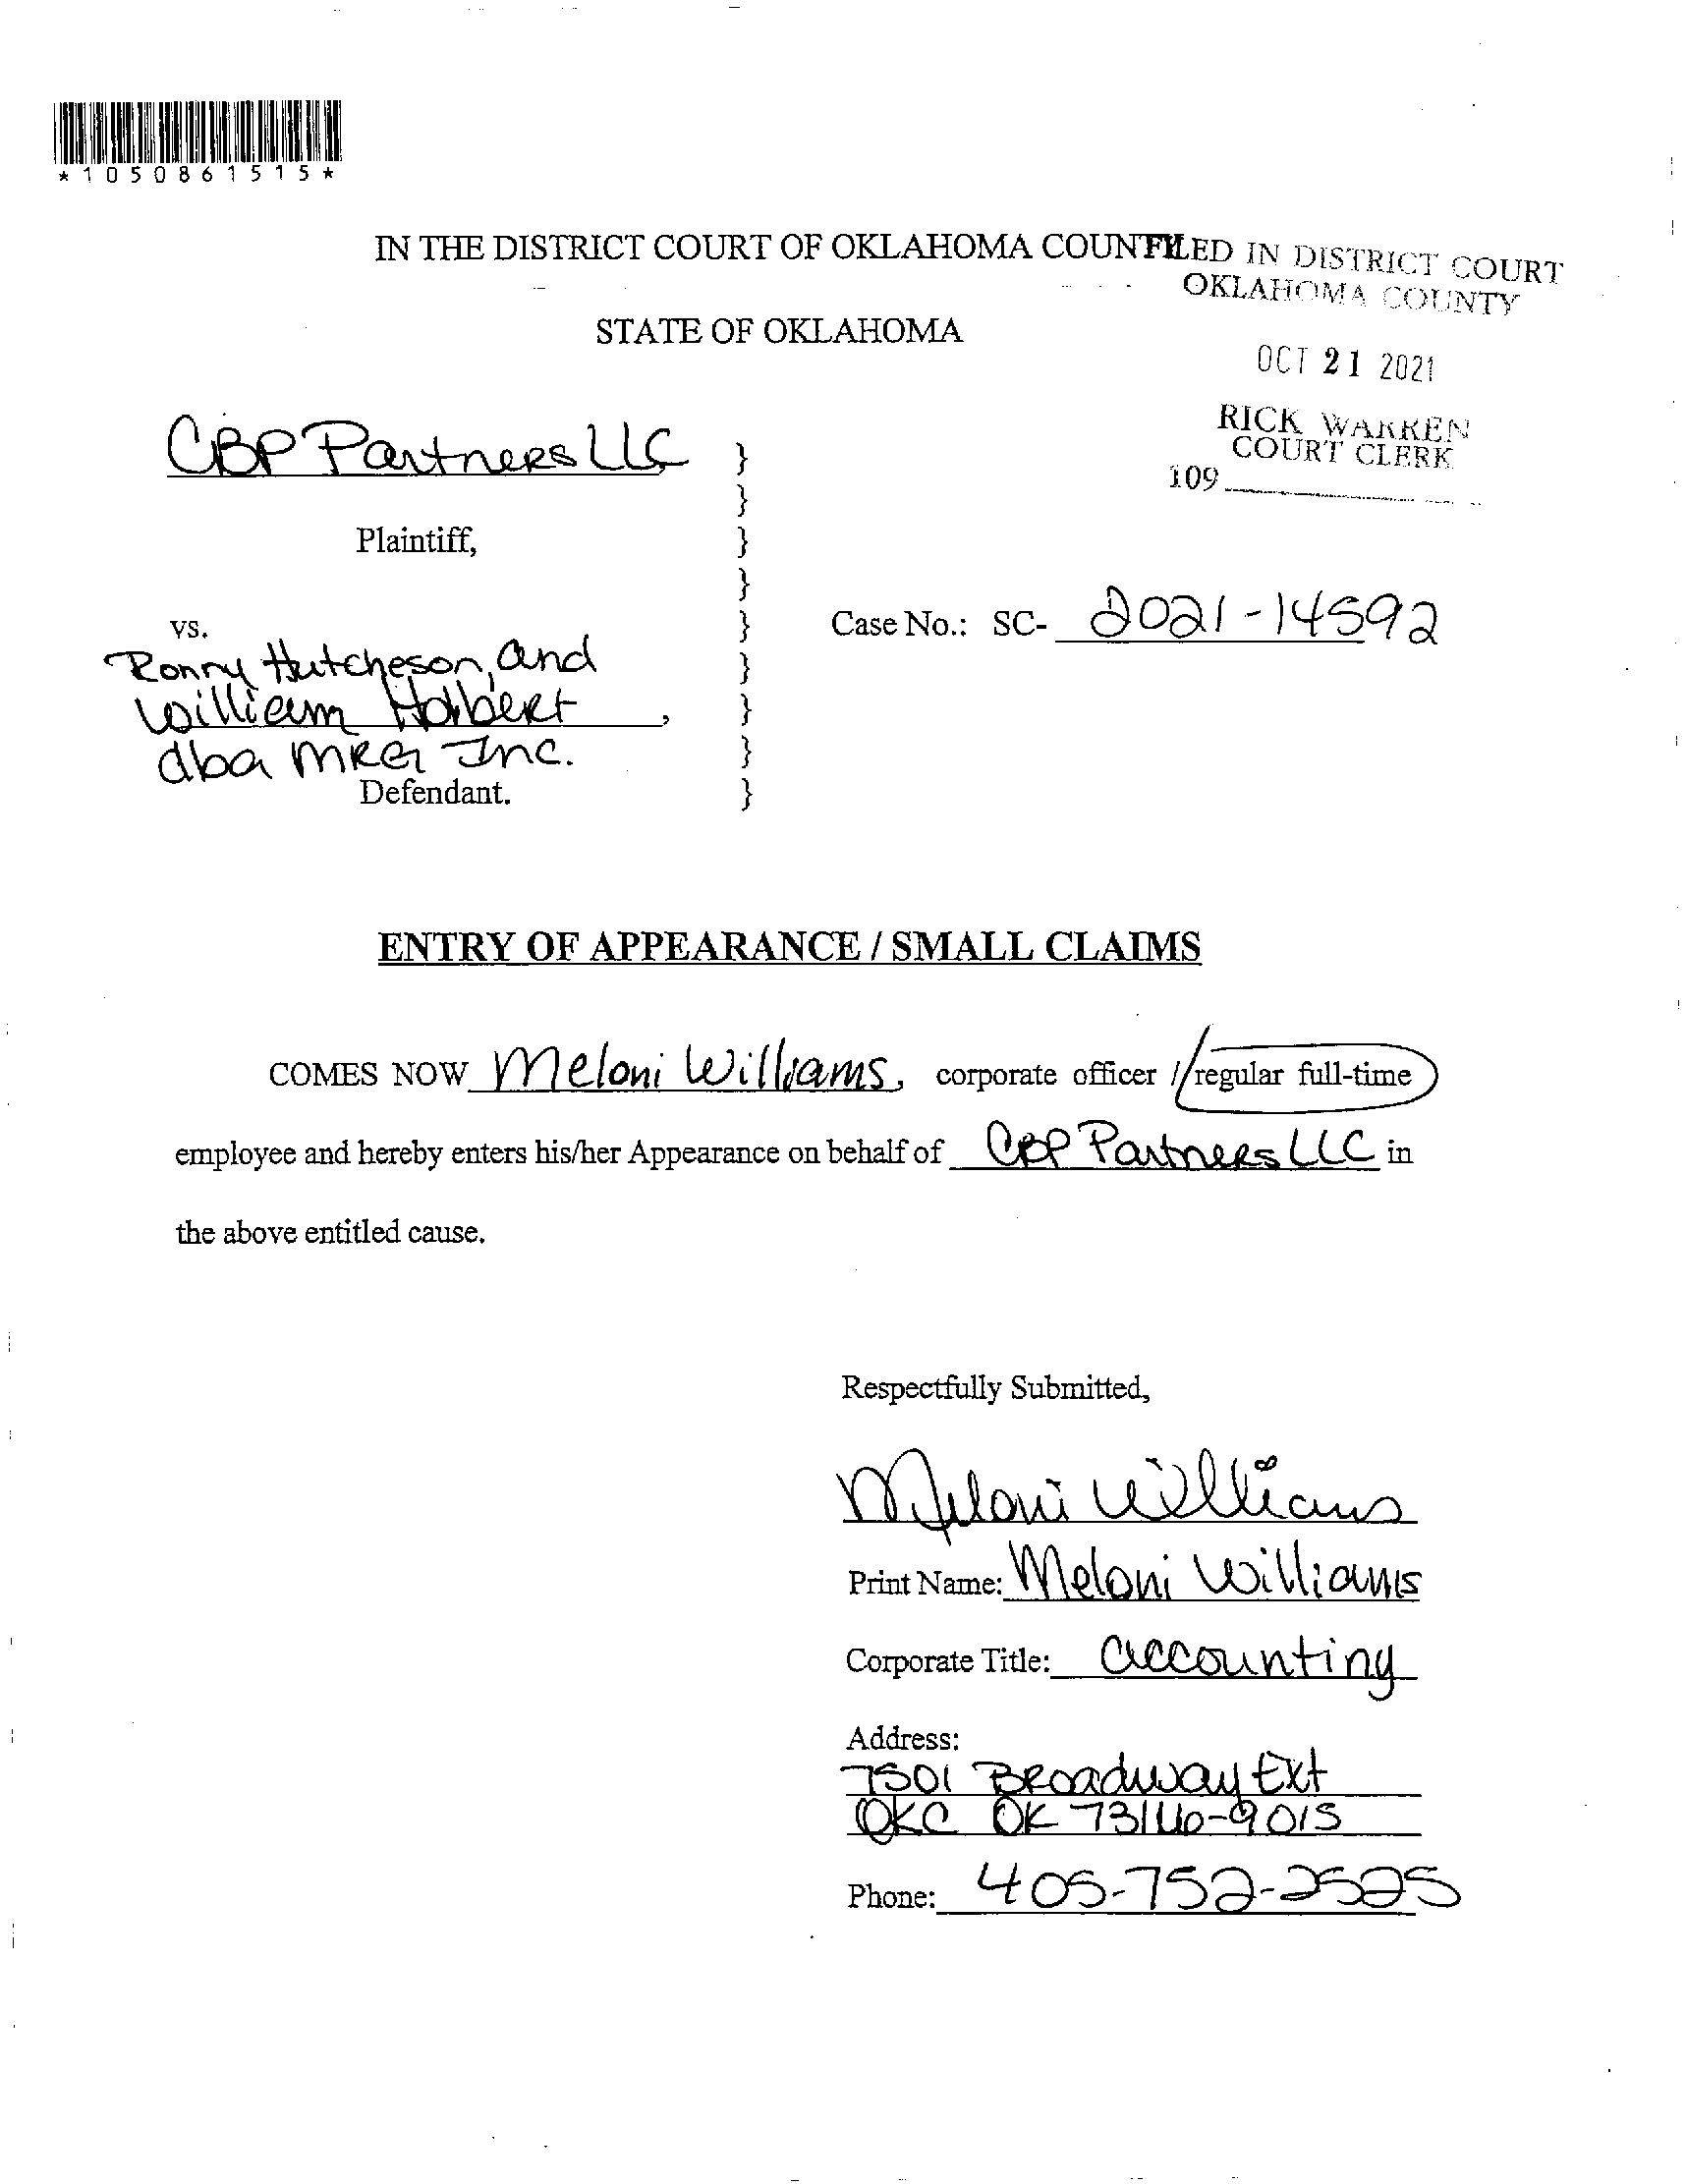 *1050861515*
IN THE DISTRICT COURT OF OKLAHOMA COUNTY
FILED IN DISTRICT COURT
OKLAHOMA COUNTY
STATE OF OKLAHOMA
OCT 21 2021
RICK WARREN
COURT CLERK
109
CBP Partners LLC }
}
Plaintiff, }
}
vs. } Case No.: SC- 2021-14592
Ronny Hutcheson, and }
William Holbert , }
dba MRG Inc. }
Defendant. }
ENTRY OF APPEARANCE / SMALL CLAIMS
COMES NOW Meloni Williams, corporate officer / regular full-time
employee and hereby enters his/her Appearance on behalf of CBP Partners LLC in
the above entitled cause.
Respectfully Submitted,
Meloni Williams
Print Name: Meloni Williams
Corporate Title: accounting
Address:
7501 Broadway Ext
OKC OK 73116-9015
Phone: 405-752-2525